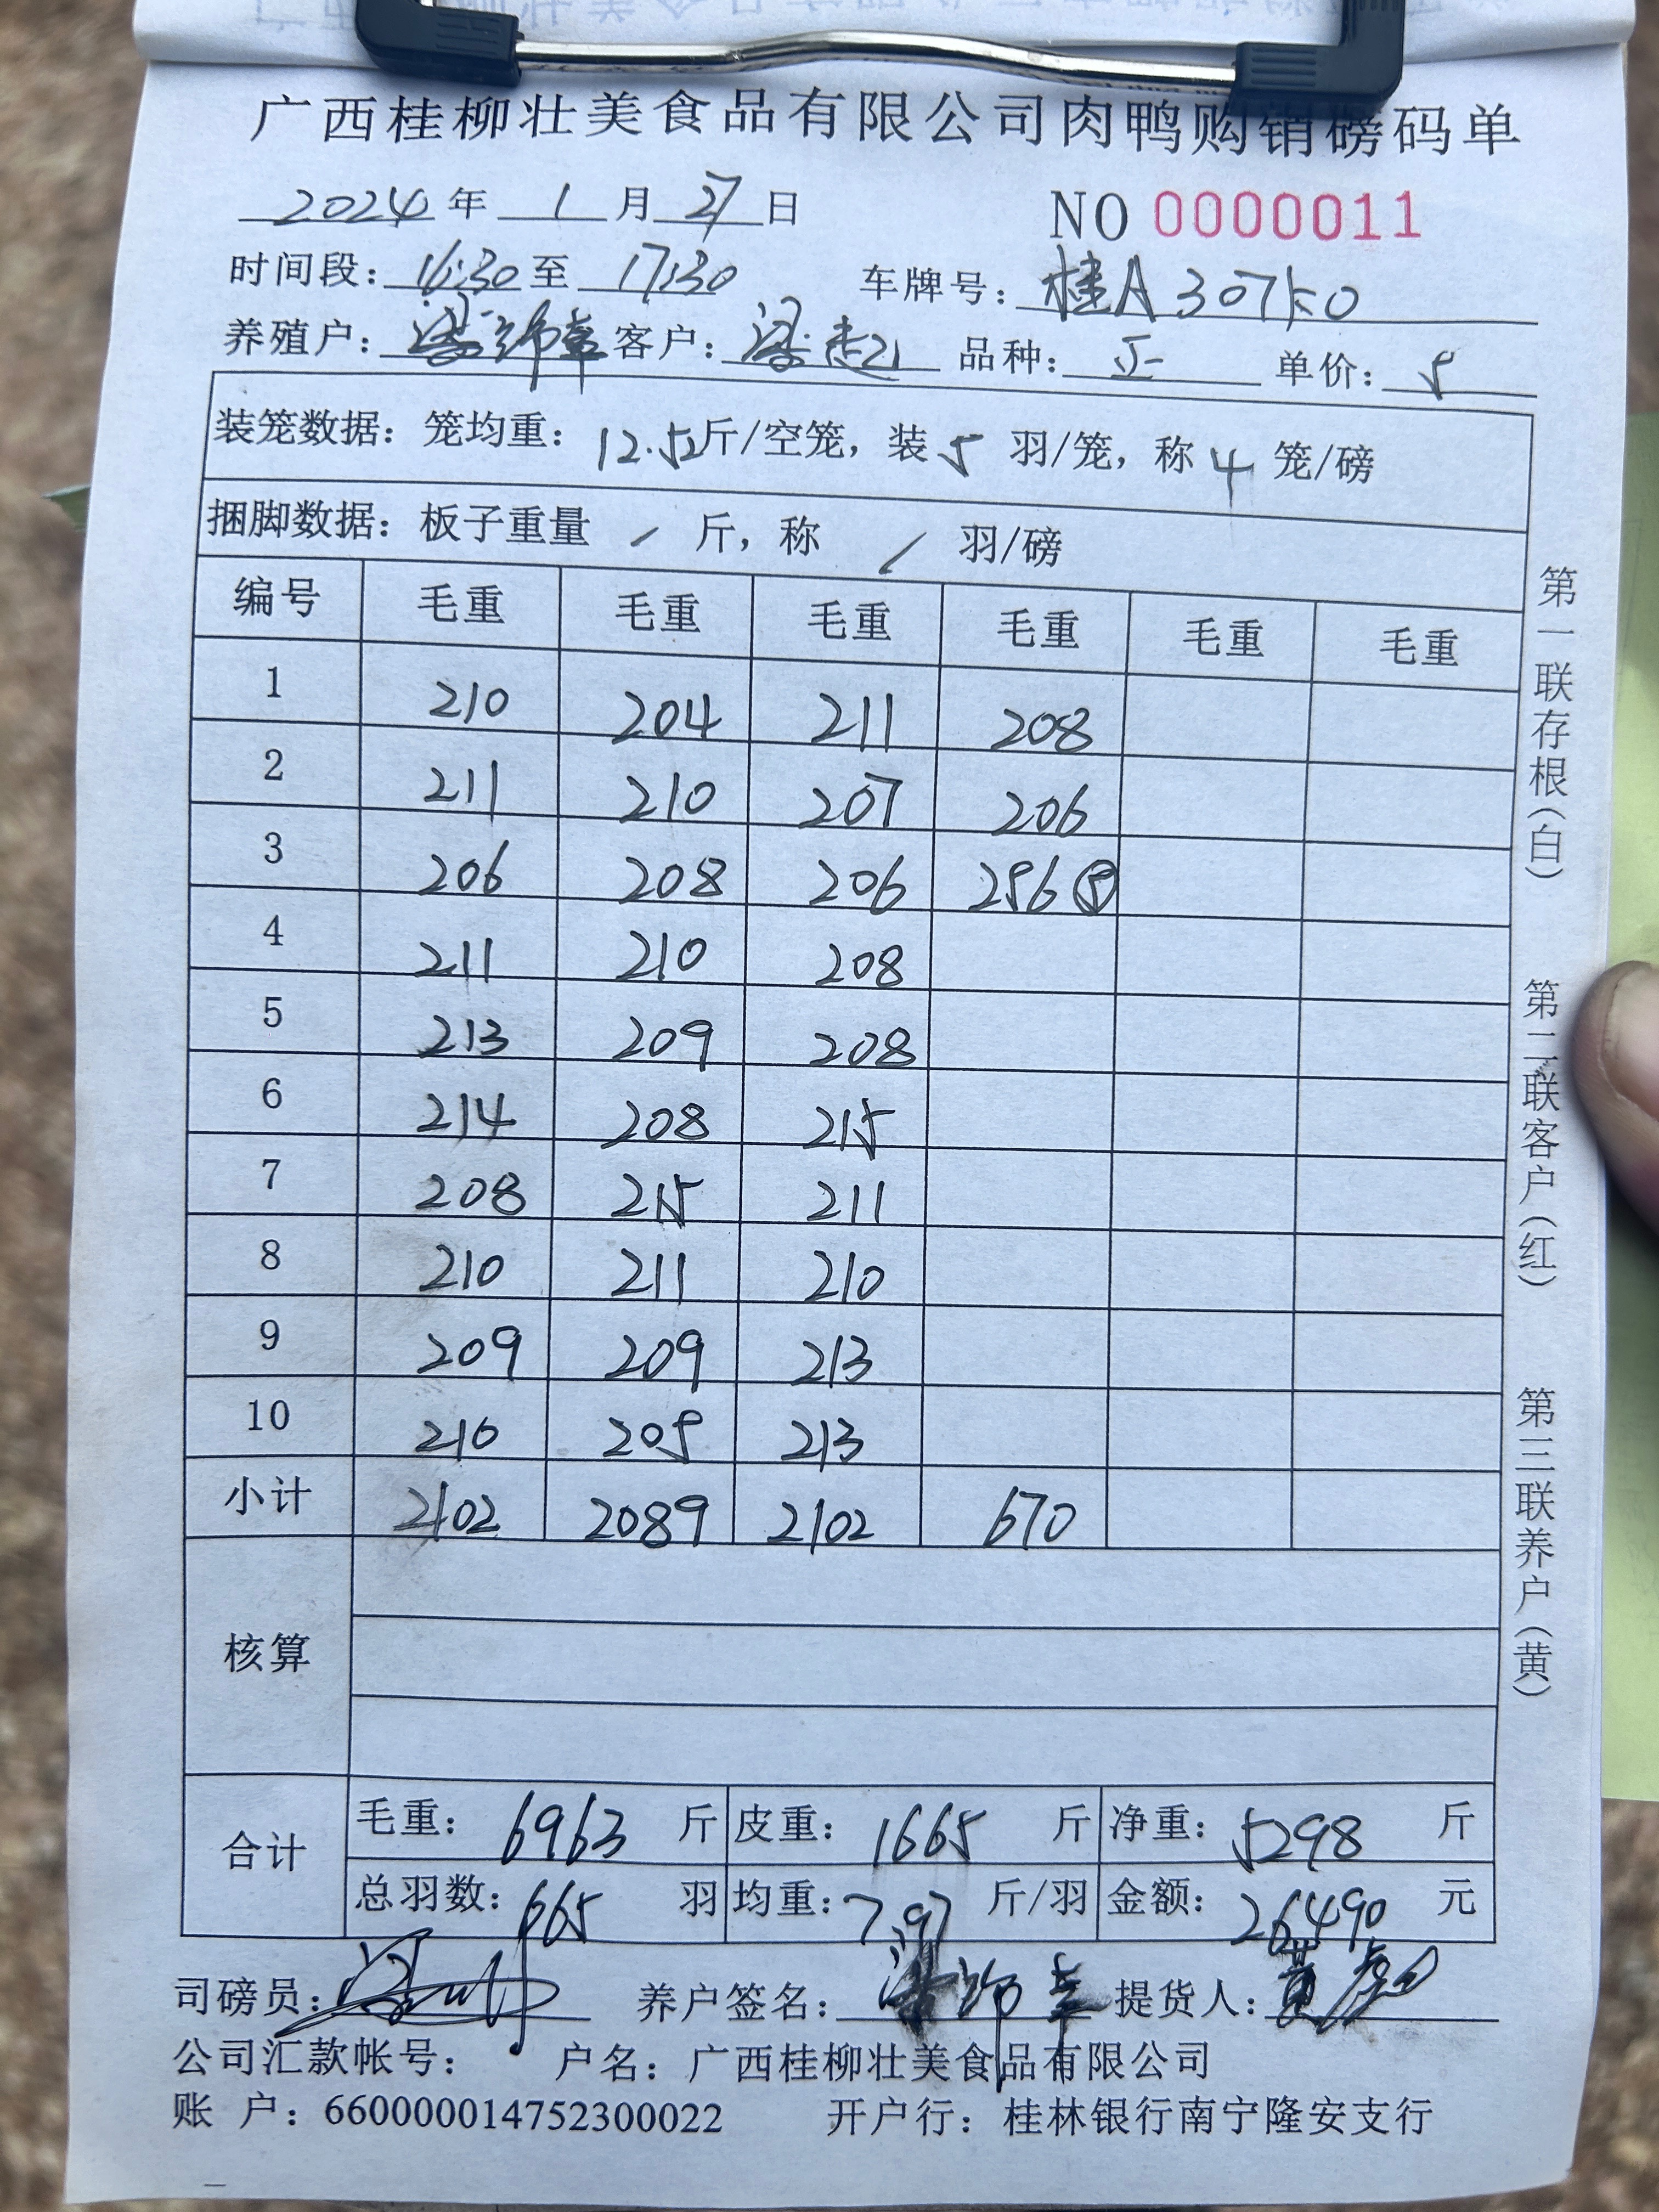 广西桂柳壮美食品有限公司肉鸭购销磅码单
2024年 1 月 27 日 NO 0000011
时间段: 16:30 至 17:30 车牌号: 桂A307K0
养殖户: 梁 章 客户: 梁 品种: 正 单价: 5
装笼数据: 笼均重: 12.52斤/空笼, 装 5 羽/笼, 称 4 笼/磅
捆脚数据: 板子重量 / 斤, 称 / 羽/磅
编号 毛重 毛重 毛重 毛重 毛重 毛重
1 210 204 211 208
2 211 210 207 206
3 206 208 206 256 ⑤
4 211 210 208
5 213 209 208
6 214 208 215
7 208 215 211
8 210 211 210
9 209 209 213
10 210 205 213
小计 2102 2089 2102 670
核算
合计
毛重: 6963 斤 皮重: 1665 斤 净重: 5298 斤
总羽数: 665 羽 均重: 7.97 斤/羽 金额: 26490 元
司磅员: 养户签名: 梁 章 提货人: 黄
公司汇款帐号: 户名: 广西桂柳壮美食品有限公司
账 户: 660000014752300022 开户行: 桂林银行南宁隆安支行
第一联存根(白)
第二联客户(红)
第三联养户(黄)